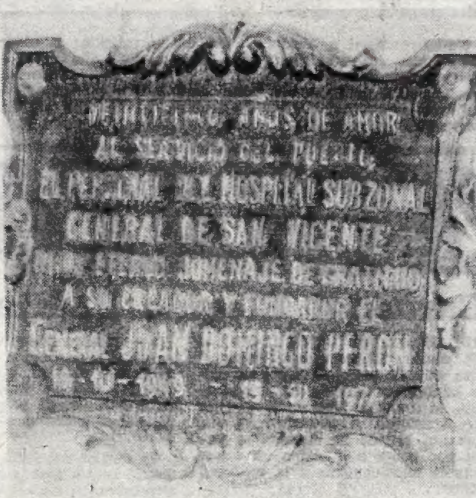 VEINTICINCO AÑOS DE AMOR
AL SERVICIO DEL PUEBLO,
EL PERSONAL DEL HOSPITAL SUBZONAL
GENERAL DE SAN VICENTE
HOMENAJE DE GRATITUD
A SU CREADOR Y FUNDADOR EL
General JUAN DOMINGO PERON
1974